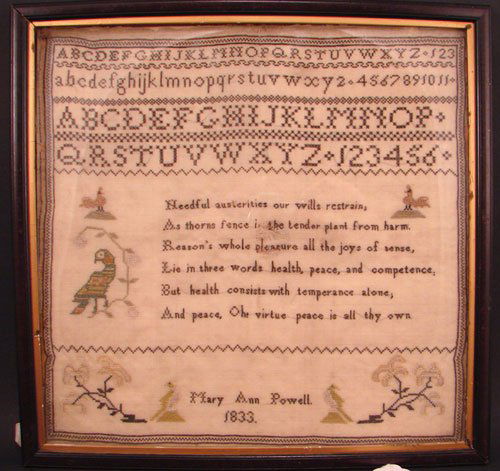 ABCDEFGHIJKLMNOPQRSTUVWXYZ·123
abcdefghijklmnopqrstuvwxyz·4567891011·
ABCDEFGHIJKLMNOP·
QRSTUVWXYZ·123456·
Needful austerities our wills restrain;
As thorns fence in the tender plant from harm.
Reason's whole pleasure all the joys of sense,
Lie in three words health, peace, and competence;
But health consists with temperance alone;
And peace, Oh! virtue peace is all thy own
Mary Ann Powell.
1833.